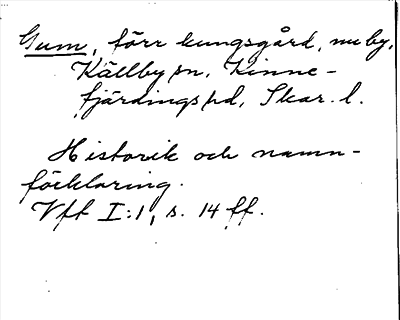 Gum, förr kungsgård, nu by,
Källby sn, Kinne-
fjärdings hd, Skar. l.
Historik och namn-
förklaring.
Vft I:1, s. 14 ff.